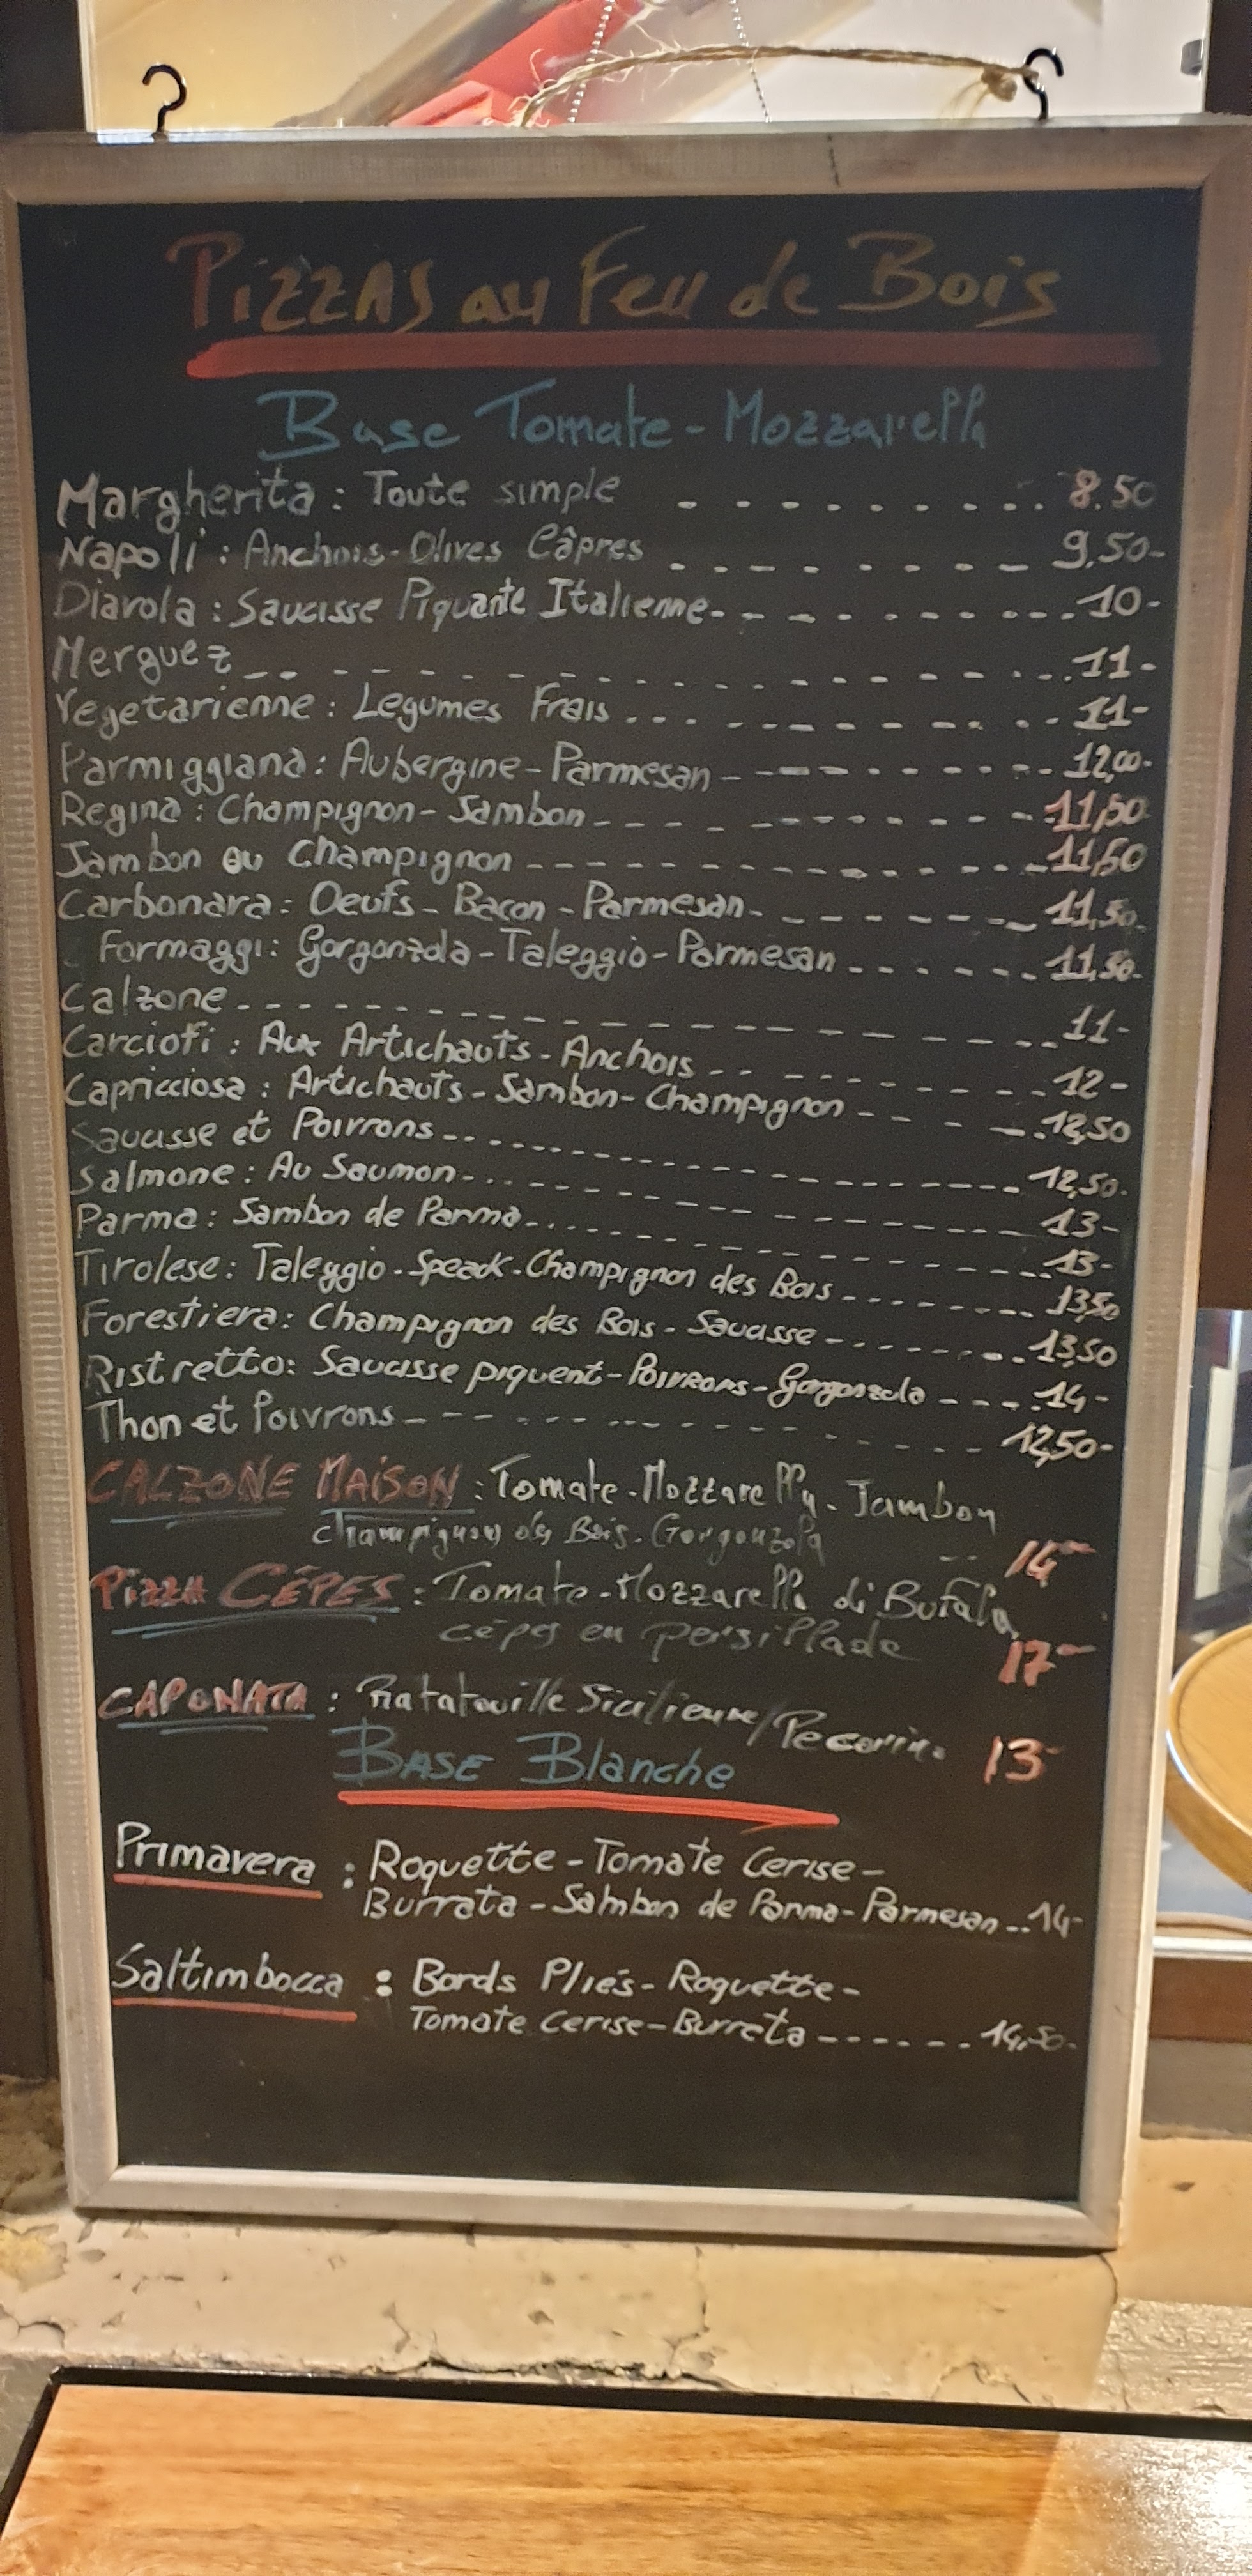 PIZZAS au Feu de Bois
Base Tomate - Mozzarella
Margherita : Toute simple . . . . . . . . . . 8.50
Napoli : Anchois - Olives Câpres . . . . . . . . . 9.50-
Diavola : Saucisse Piquante Italienne - - - - - - - - - 10-
Merguez - - - - - - - - - - - - 11-
Vegetarienne : Legumes Frais - - - - - - - - - 11-
Parmiggiana : Aubergine - Parmesan - - - - - - - - 12,00-
Regina : Champignon - Jambon - - - - - - - - - 11,50
Jambon ou Champignon - - - - - - - - - - 11,50
Carbonara : Oeufs - Bacon - Parmesan - - - - - - - 11,50
Formaggi : Gorgonzola - Taleggio - Parmesan - - - - - - 11,50-
Calzone - - - - - - - - - - - - 11-
Carciofi : Aux Artichauts - Anchois - - - - - - - - 12-
Capricciosa : Artichauts - Jambon - Champignon - - - - 12,50
Saucisse et Poivrons - - - - - - - - - - 12,50-
Salmone : Au Saumon - - - - - - - - - - 13-
Parma : Jambon de Parma - - - - - - - - - 13-
Tirolese : Taleggio - Speack - Champignon des Bois - - - - - 13,50
Forestiera : Champignon des Bois - Saucisse - - - - - - 13,50
Ristretto : Saucisse piquent - Poivrons - Gorgonzola - - - - 14-
Thon et Poivrons - - - - - - - - - - 12,50-
CALZONE MAISON : Tomate - Mozzarella - Jambon
Champignon des Bois - Gorgonzola 14-
PIZZA CÉPES : Tomate - Mozzarella di Bufala
cépes en persillade 17-
CAPONATA : Ratatouille Sicilienne / Pecorino 13-
BASE Blanche
Primavera : Roquette - Tomate Cerise -
Burrata - Jambon de Parma - Parmesan - - 14-
Saltimbocca : Bords Pliés - Roquette -
Tomate Cerise - Burrata - - - - - - 14,50-